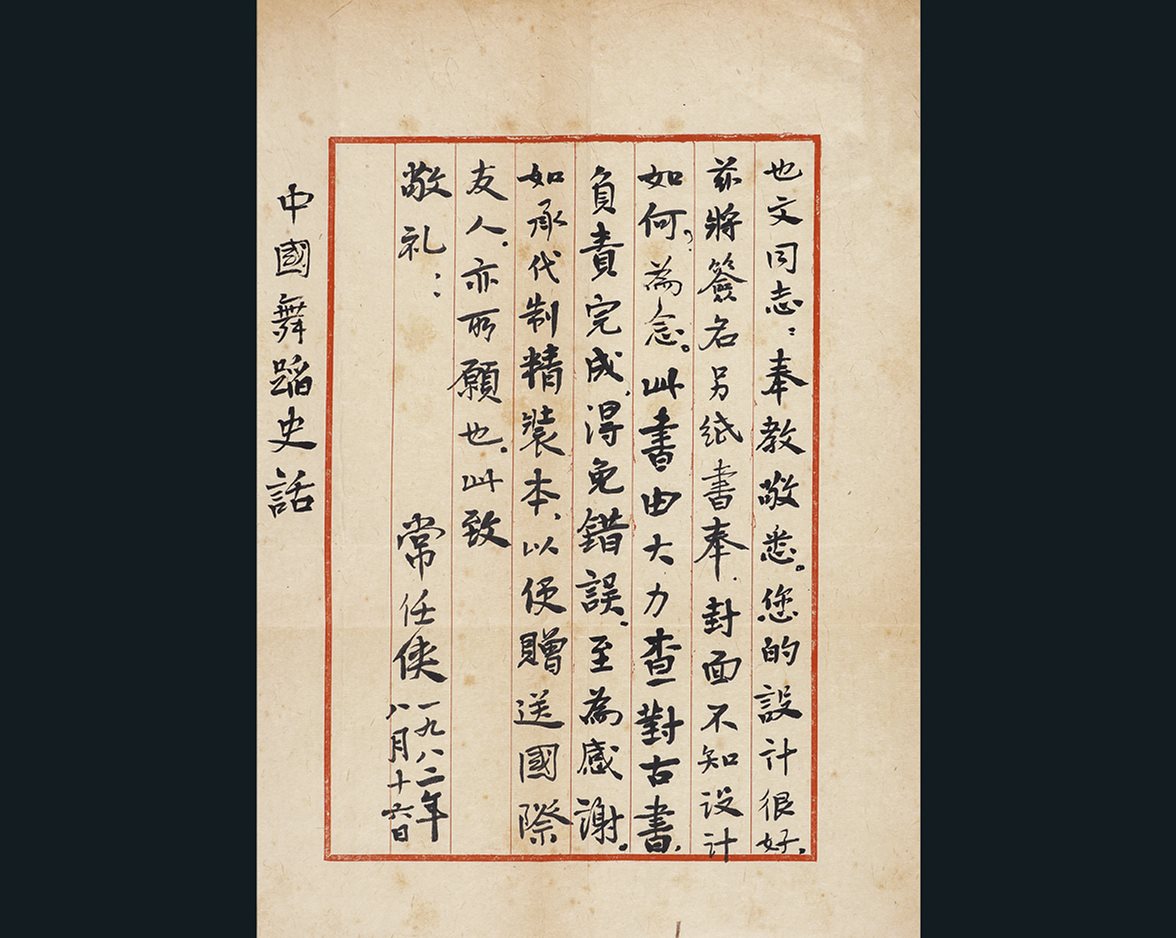 也文同志：奉教敬悉。您的設计很好。
兹將簽名另纸書奉，封面不知设计
如何？為念。此書由大力查對古書，
負責完成，得免錯誤。至為感謝。
如承代制精裝本，以便贈送國際
友人，亦所願也。此致
敬礼：
常任俠 一九八二年
八月十六日
中國舞蹈史話